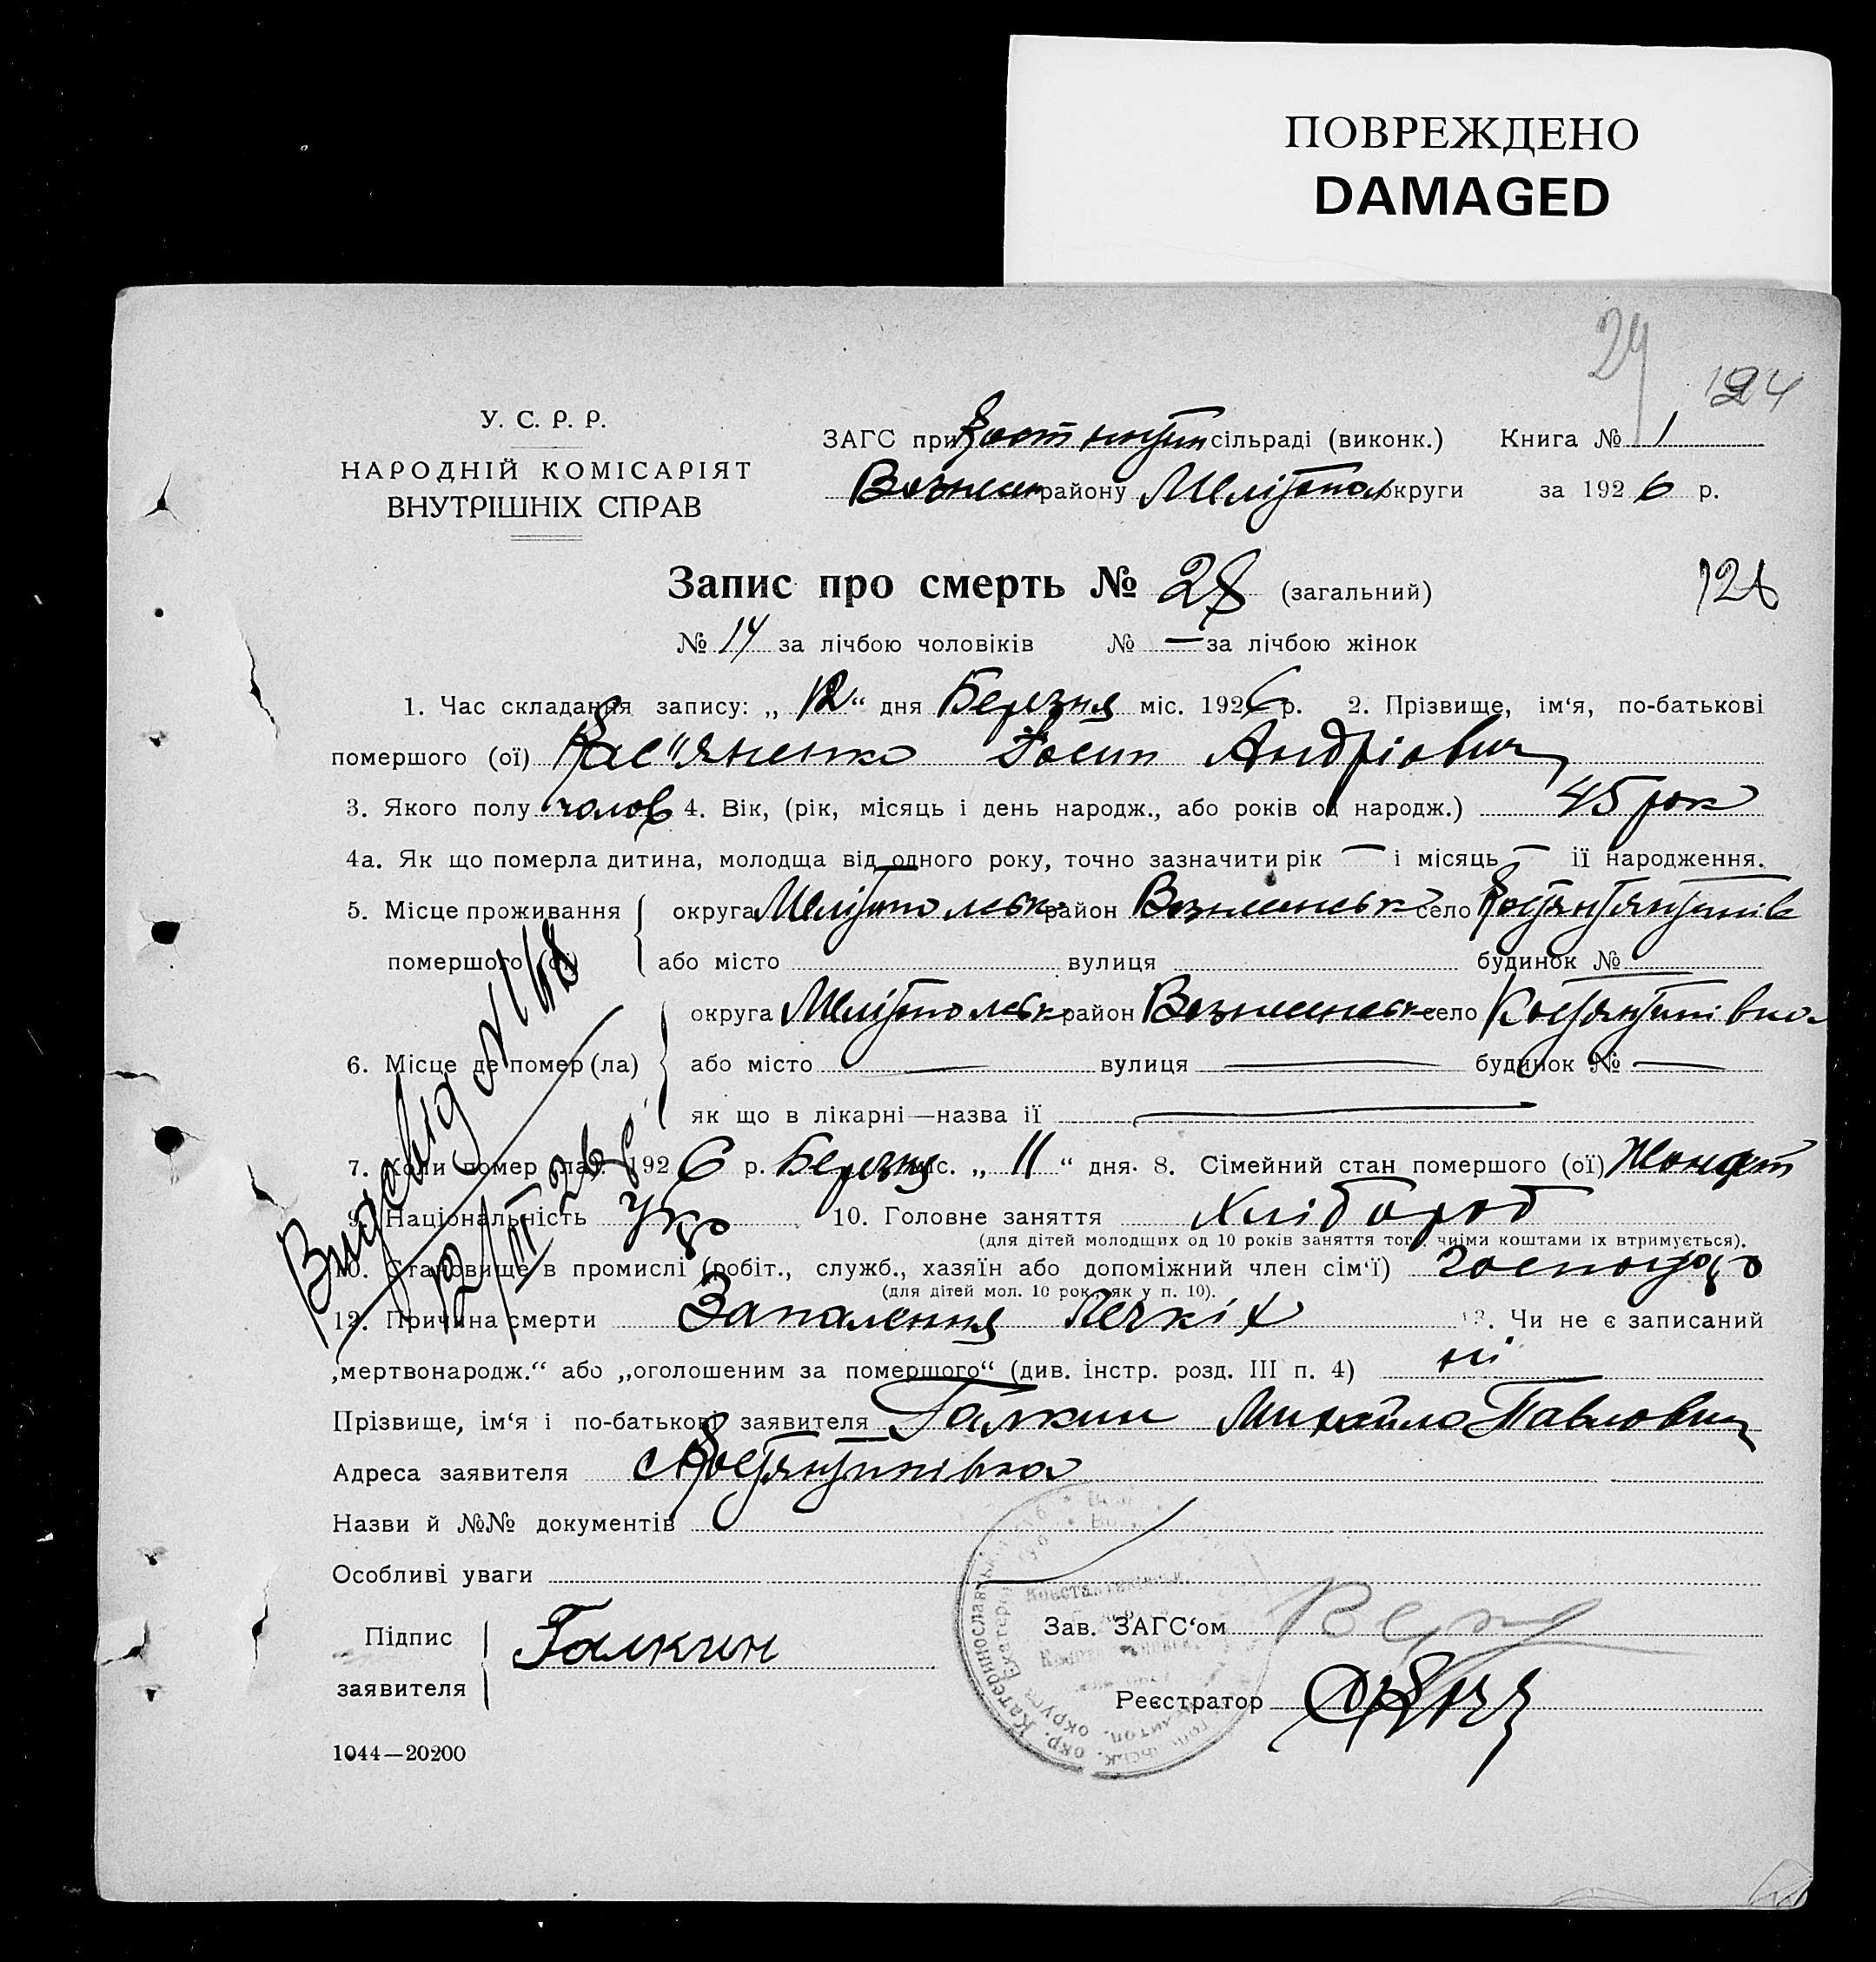 ПОВРЕЖДЕНО
DAMAGED
24
124
У. С. Р. Р.
НАРОДНІЙ КОМІСАРІЯТ
ВНУТРІШНІХ СПРАВ
ЗАГС при Костянтин сільраді (виконк.) Книга № 1
Вознесен району Мелітопол округи за 1926 р.
Запис про смерть № 28 (загальний)
128
№ 14 за лічбою чоловіків № — за лічбою жінок
1. Час складання запису: „ 12 “ дня Березня міс. 1926 р. 2. Прізвище, ім‘я, по-батькові
помершого (ої) Кас"яненко Йосип Андріович
3. Якого полу чолов 4. Вік, (рік, місяць і день народж., або років од народж.) 45 рок
4а. Як що померла дитина, молодща від одного року, точно зазначити рік — і місяць — ії народження.
5. Місце проживання помершого округа Мелітопольськ район Вознесенськ село Костянтинівк
або місто вулиця будинок №
6. Місце де помер (ла) округа Мелітопольськ район Вознесенськ село Костянтинівка
або місто — вулиця — будинок № —
як що в лікарні—назва ії —
7. Коли помер (ла) 1926 р. Березня міс. „ 11 “ дня. 8. Сімейний стан помершого (ої) Жонат
9. Національність Укр 10. Головне заняття Хлібороб
(для дітей молодщих од 10 років заняття того, чиїми коштами їх втримується).
10. Становище в промислі (робіт., служб., хазяїн або допоміжний член сім‘ї) господар
(для дітей мол. 10 рок., як у п. 10).
12. Причина смерти Запалення Легкіх 13. Чи не є записаний
„мертвонародж.“ або „оголошеним за помершого“ (див. інстр. розд. III п. 4) ні
Прізвище, ім‘я і по-батькові заявителя Галкин Михайло Павлович
Адреса заявителя с Костянтинівка
Назви й №№ документів
Особливі уваги
Підпис заявителя Галкин
Зав. ЗАГС‘ом
Реєстратор
1044—20200
Видовід № 168
12/III 26 р.